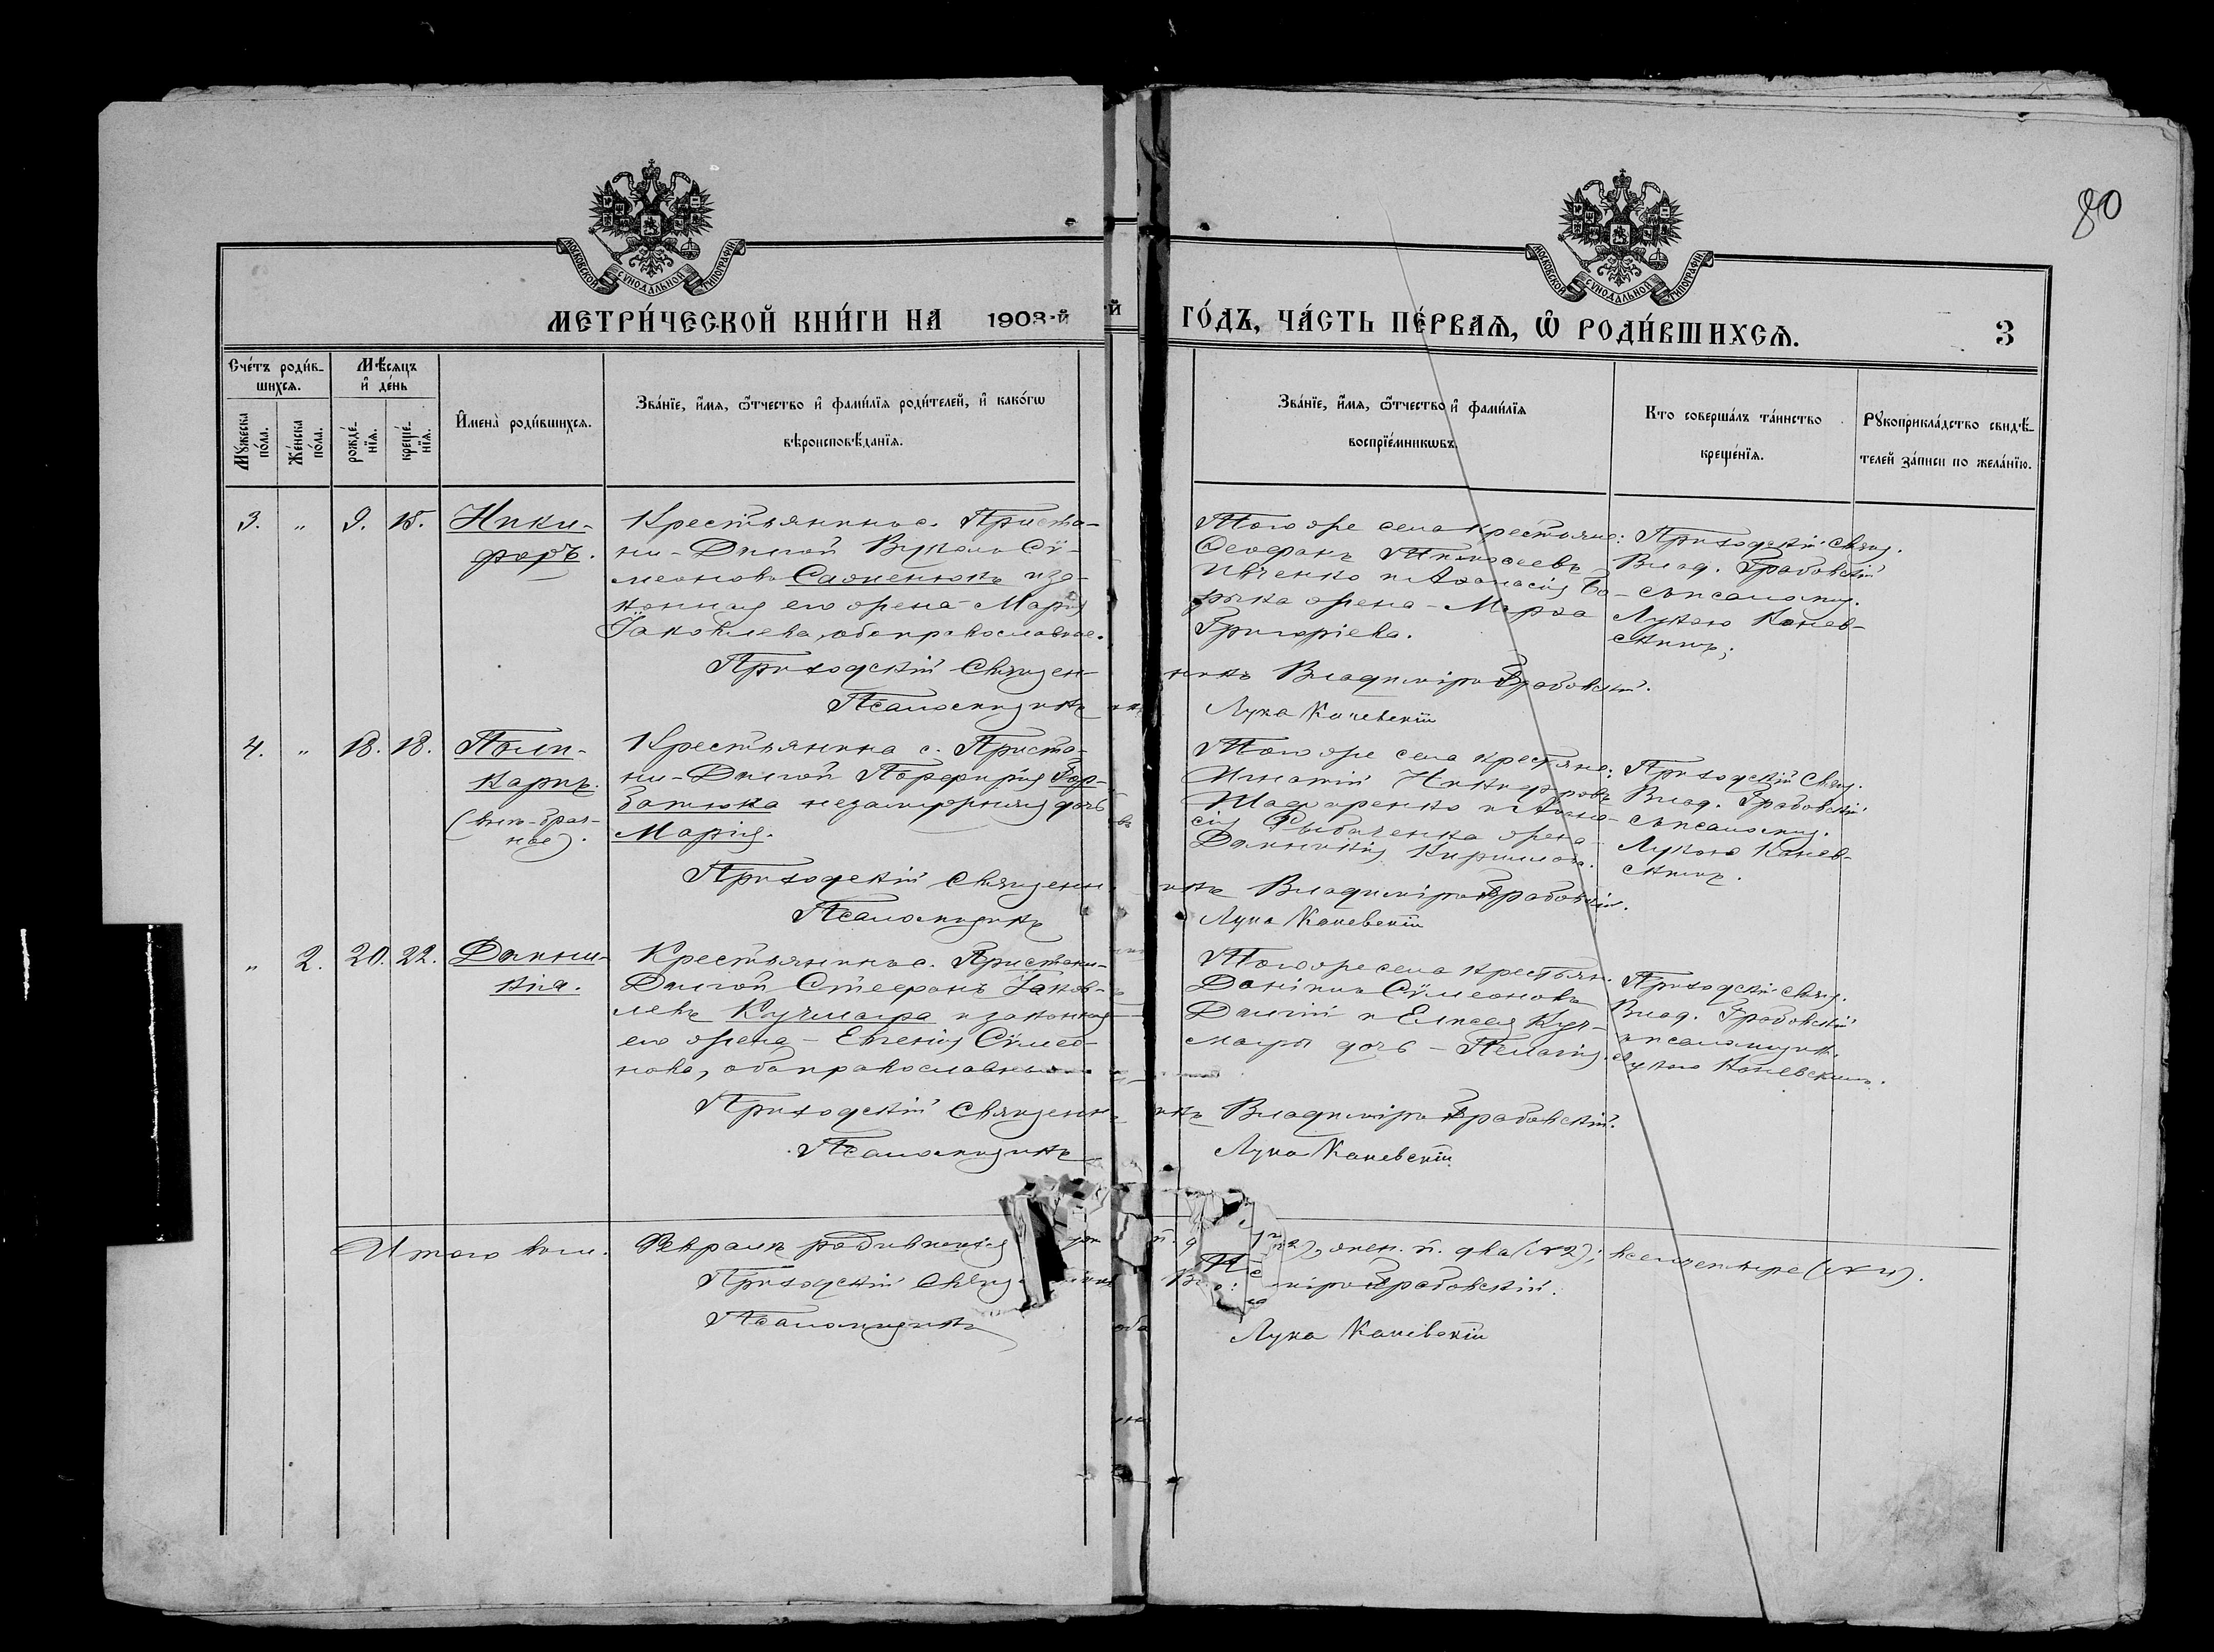 80
МОСКОВСКОЙ СѴНОДАЛЬНОЙ ТИПОГРАФІИ
МОСКОВСКОЙ СѴНОДАЛЬНОЙ ТИПОГРАФІИ
МЕТРИ́ЧЕСКОЙ КНИ́ГИ НА 1903-й
ГО́ДЪ, ЧА́СТЬ ПЕ́РВАѦ, Ѽ РОДИ́ВШИХСѦ.
3
Сче́тъ роди́в-
шихсѧ.
Мꙋ́жеска
по́ла.
Же́нска
по́ла.
Мѣ́сѧцъ
и҆ де́нь
рожде́-
нїѧ.
креще́-
нїѧ.
И҆мена̀ роди́вшихсѧ.
Зва́нїе, и҆́мѧ, ѻ҆́тчество и҆ фами́лїѧ роди́телей, и҆ како́гѡ
вѣроисповѣ́данїѧ.
Зва́нїе, и҆́мѧ, ѻ҆́тчество и҆ фами́лїѧ
воспрїе́мникѡвъ.
Кто соверша́лъ та́инство
креще́нїѧ.
Рꙋкоприкла́дство свидѣ́-
телей за́писи по жела́нїю.
3. „ 9. 15. Ники-
форъ.
Крестьянинъ с. Приста-
ни-Долгой Вукола Сѵ-
меоновъ Сапенюкъ и за-
конная его жена - Марія
Іаковлева, оба православные.
Того же села крестьяне:
Феофанъ Моѵсеевъ
Ивченко и Афанасія Бо-
рыка жена - Марѳа
Григоріева.
Приходскій Свящ.
Влад. Грабовскій
съ псаломщ.
Лукою Канев-
скимъ;
Приходскій Священ-
никъ Владиміръ Грабовскій.
Псаломщикъ
Лука Каневскій
4. „ 18. 18. Поли-
карпъ.
(внѣ-брач-
ное).
Крестьянина с. Приста-
ни-Долгой Порфирія Гор-
батюка незамужняя дочь
Марія.
Того же села крестьяне:
Игнатій Никифоровъ
Шафаренко и Аѳана-
сія Рыбаченка жена -
Домникія Кириллова.
Приходскій Свящ.
Влад. Грабовскій
съ псаломщ.
Лукою Канев-
скимъ.
Приходскій Священн-
икъ Владиміръ Грабовскій.
Псаломщикъ
Лука Каневскій
„ 2. 20. 22. Домни-
кія.
Крестьянинъ с. Пристани-
Долгой Стефанъ Іаков-
левъ Кучмагра и законная
его жена - Евгенія Сѵмео-
нова, оба православные
Того же села крестьян.
Даніилъ Сѵмеоновъ
Долгій и Елисея Куч-
магры дочь - Пелагія.
Приходскій Свящ.
Влад. Грабовскій
и псаломщик.
Лукою Каневскимъ.
Приходскій Священн-
икъ Владиміръ Грабовскій.
Псаломщикъ
Лука Каневскій
Итого въ м. Февралѣ родившихся
жен. п. два (№2); всего четыре (№4).
Приходскій Свящ
Грабовскій.
Псаломщикъ
Лука Каневскій